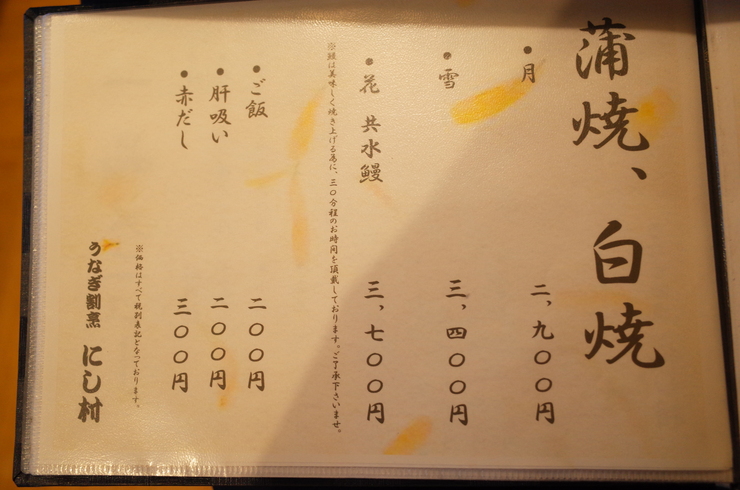 蒲焼、白焼
●月 二、九〇〇円
●雪 三、四〇〇円
●花 共水鰻 三、七〇〇円
※鰻は美味しく焼き上げる為に、三〇分程のお時間を頂戴しております。ご了承下さいませ。
●ご飯 二〇〇円
●肝吸い 二〇〇円
●赤だし 三〇〇円
※価格はすべて税別表記となっております。
うなぎ割烹 にし村